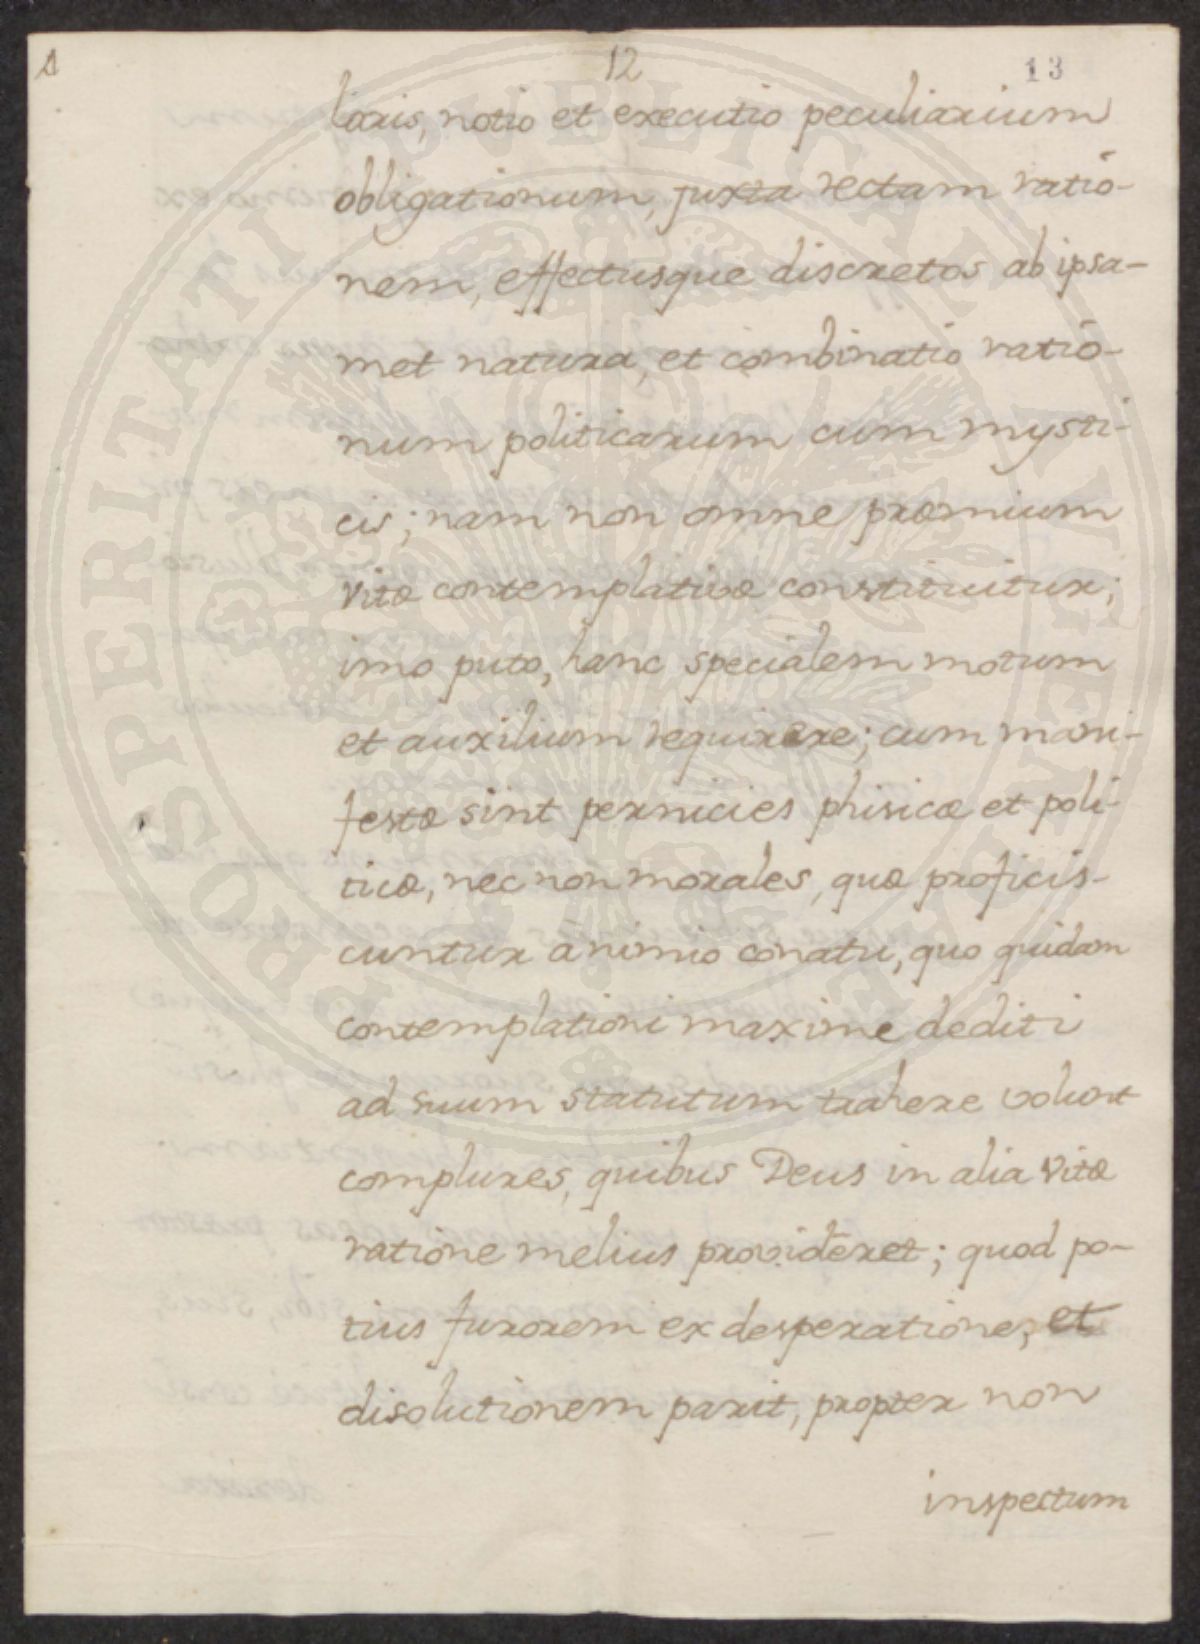 12
13
laris, notio et executio peculiarium
obligationum, juxta rectam ratió-
nem, effectusque discretos ab ipsa-
met natura, et combinatio ratió-
num politicarum cum mysti-
cis; nam non omne præmium
vitæ contemplativæ constituitur;
imo puto, hanc specialem motum
et auxilium requirere; cum mani-
festæ sint pernicies phisicæ et poli-
ticæ, nec non morales, quæ proficis-
cuntur à nimio conatu, quo quidam
contemplationi maxime dediti
ad suum statutum trahere volunt
complures, quibus Deus in alia vitæ
ratione melius provideret; quod po-
tius furorem ex desperatione, et
disolutionem parit, propter non
inspectum
PROSPERITATI PVBLICAE AVGENDAE